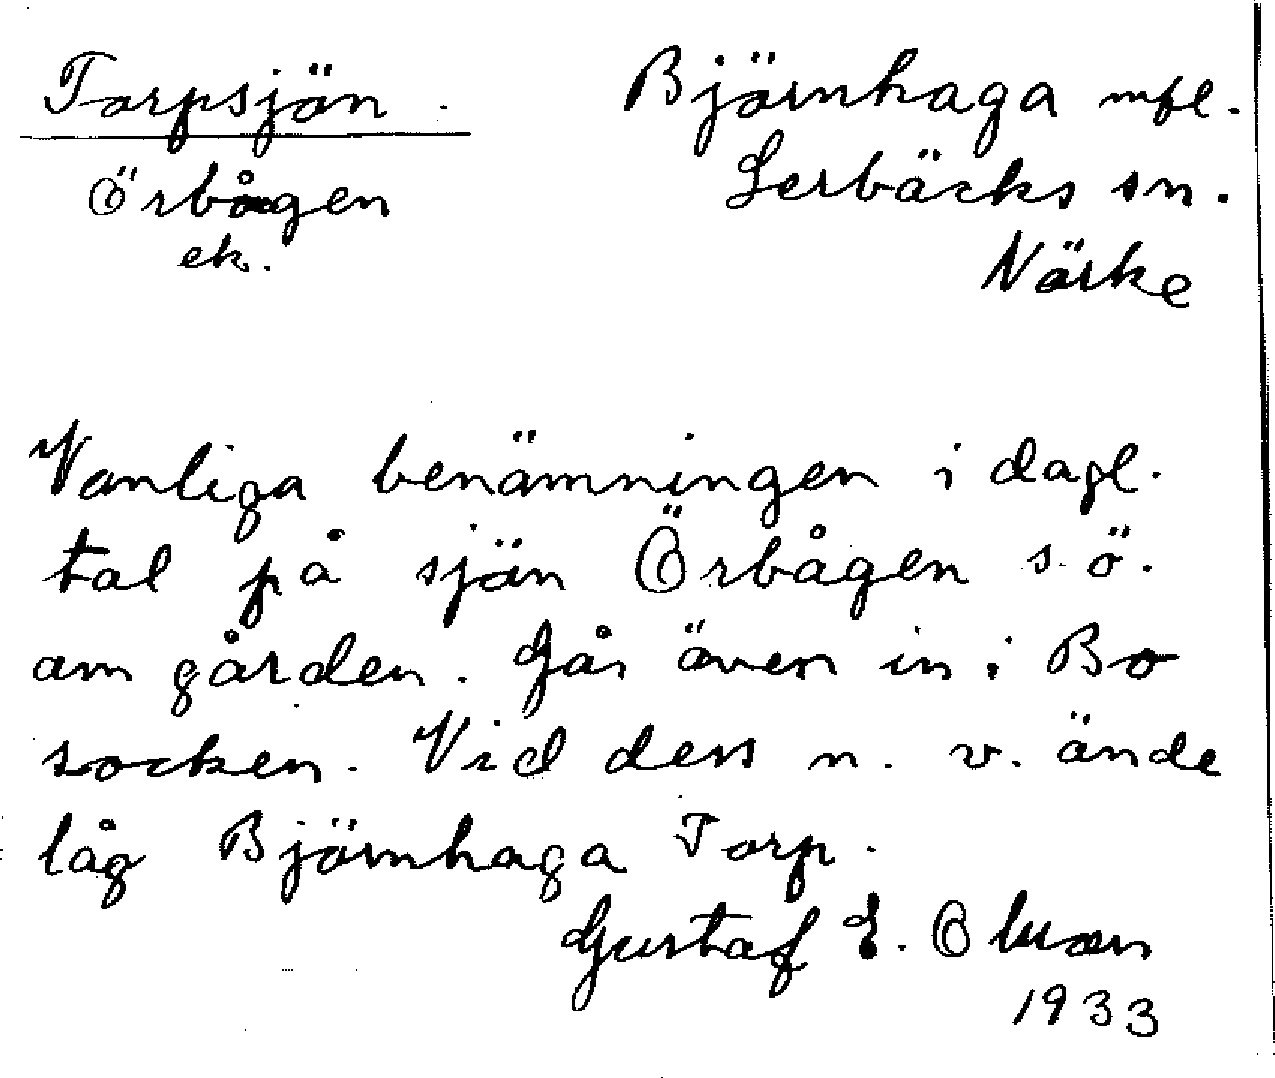 Torpsjön.
Björnhaga mfl.
Örbågen
Lerbäcks sn.
ek.
Närke
Vanliga benämningen i dagl.
tal på sjön Örbågen s.ö.
om gården. Går även in i Bo
socken. Vid dess n. v. ände
låg Björnhaga Torp.
Gustaf E. Olsson
1933